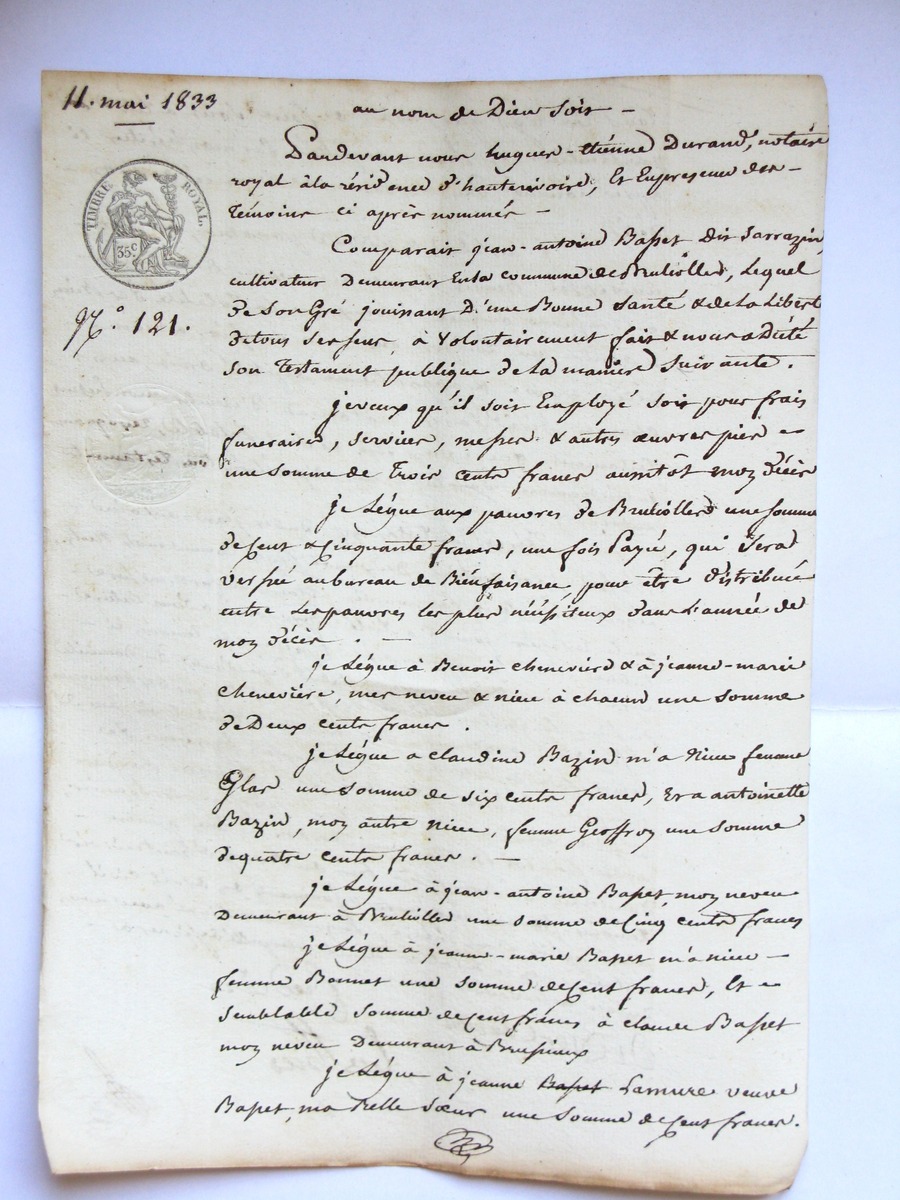 11. mai 1833
au nom de Dieu soit -
Pardevant nous hugues-Etienne Durand, notaire
royal à la résidence d'hauterivoire, Et En presence des -
Témoins ci après nommés -
TIMBRE ROYAL
35 c
Comparait jean-antoine Basset dit Sarrazin,
cultivateur Demeurant En la Commune de Brulliolles, Lequel
de Son Gré jouissant D'une Bonne Santé & de La Liberté
N.° 121.
de tous Ses Sens, à Volontairement fait & nous a Dicté
son Testament publique de la maniere Suivante.
je veux qu'il soit Employé Soit pour frais
funeraires, services, messes & autres œuvres pies -
une Somme de Trois Cents francs aussitôt mon décès
je Lègue aux pauvres de Brulliolles une Somme
de Cent & Cinquante francs, une fois Payée, qui Sera
versée au bureau de Bienfaisance, pour être distribuée
entre Les pauvres les plus nécessiteux dans L'année de
mon décès. -
je Lègue à Benoit Chenevière & à jeanne-marie
Chenevière, mes neveu & niece à chacun une Somme
de Deux Cents francs.
je Lègue a Claudine Bazin m'a Niece femme
Glas une Somme de six cents francs, Et a antoinette
Bazin, mon autre niece, femme Geoffroy une Somme
de quatre cents francs. -
je Lègue à jean-antoine Basset, mon neveu
Demeurant à Brulliolles une Somme de Cinq Cents francs
je Lègue à jeanne-marie Basset m'a niece -
femme Bonnet une Somme de Cent francs, Et -
semblable Somme de Cent francs à Claude Basset
mon neveu Demeurant à Brussieux
je Lègue à jeanne Basset Lamure veuve
Basset, ma Belle Sœur une Somme de Cent francs.